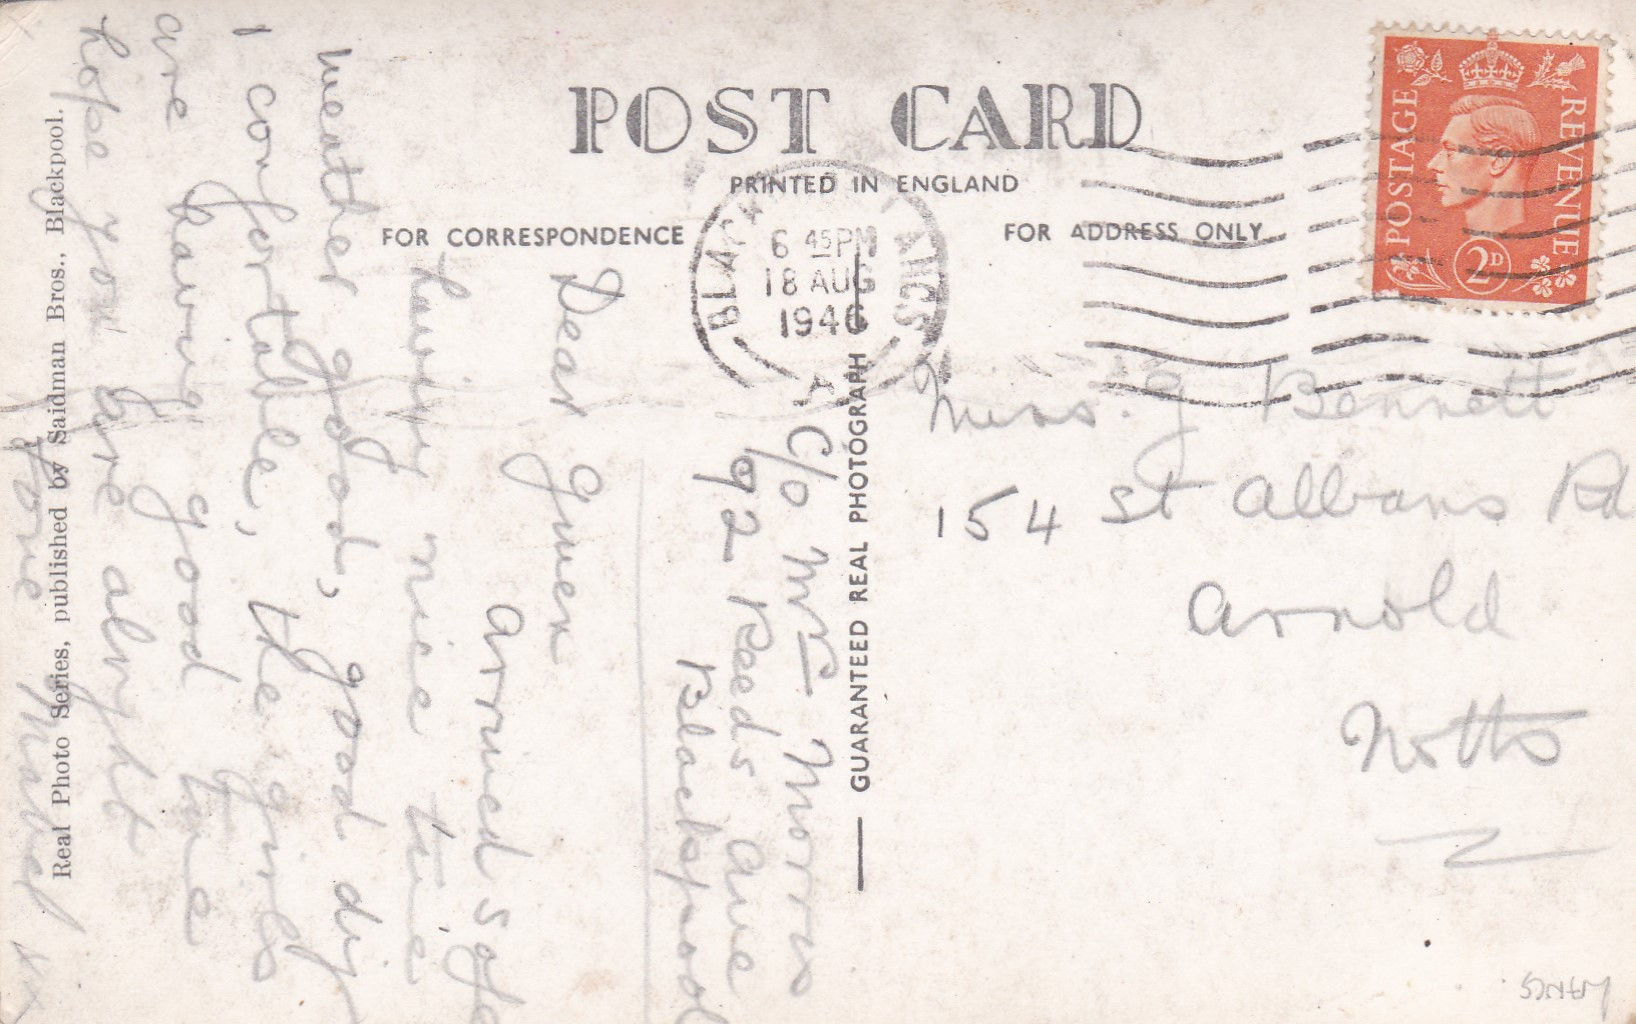 POST CARD
PRINTED IN ENGLAND
FOR CORRESPONDENCE
FOR ADDRESS ONLY
POSTAGE REVENUE
2D
BLACKPOOL LANCS
6 45PM
18 AUG
1946
A
C/o Mrs Morris
92 Reeds Ave
Blackpool
Dear Gwen
Arrived Safe
having nice time
weather good, good dig
& comfortable, the girls
are having good time
hope you are alright
love Mabel xx
Miss. J Bennett
154 St Albans Rd
Arnold
Notts
GUARANTEED REAL PHOTOGRAPH
Real Photo Series, published by Saidman Bros., Blackpool.